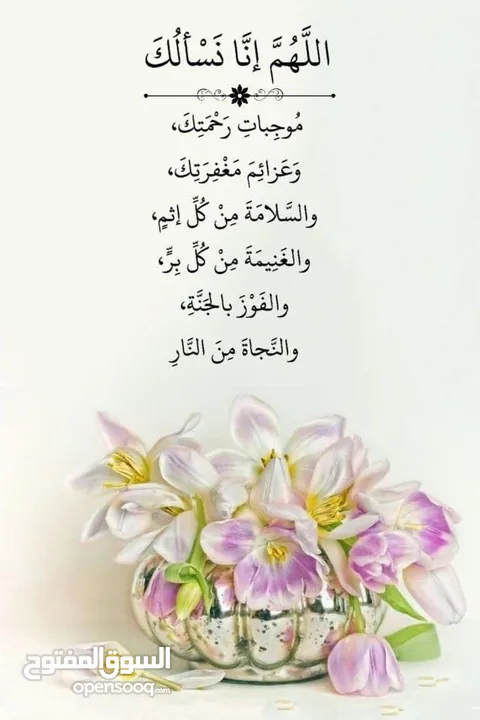 اللَّهُمَّ إنَّا نَسْألُكَ
مُوجِباتِ رَحْمَتِكَ،
وَعَزائِمَ مَغْفِرَتِكَ،
والسَّلامَةَ مِنْ كُلِّ إثمٍ،
والغَنِيمَةَ مِنْ كُلِّ بِرٍّ،
والفَوْزَ بالجَنَّةِ،
والنَّجاةَ مِنَ النَّارِ
السوق المفتوح
opensooq.com